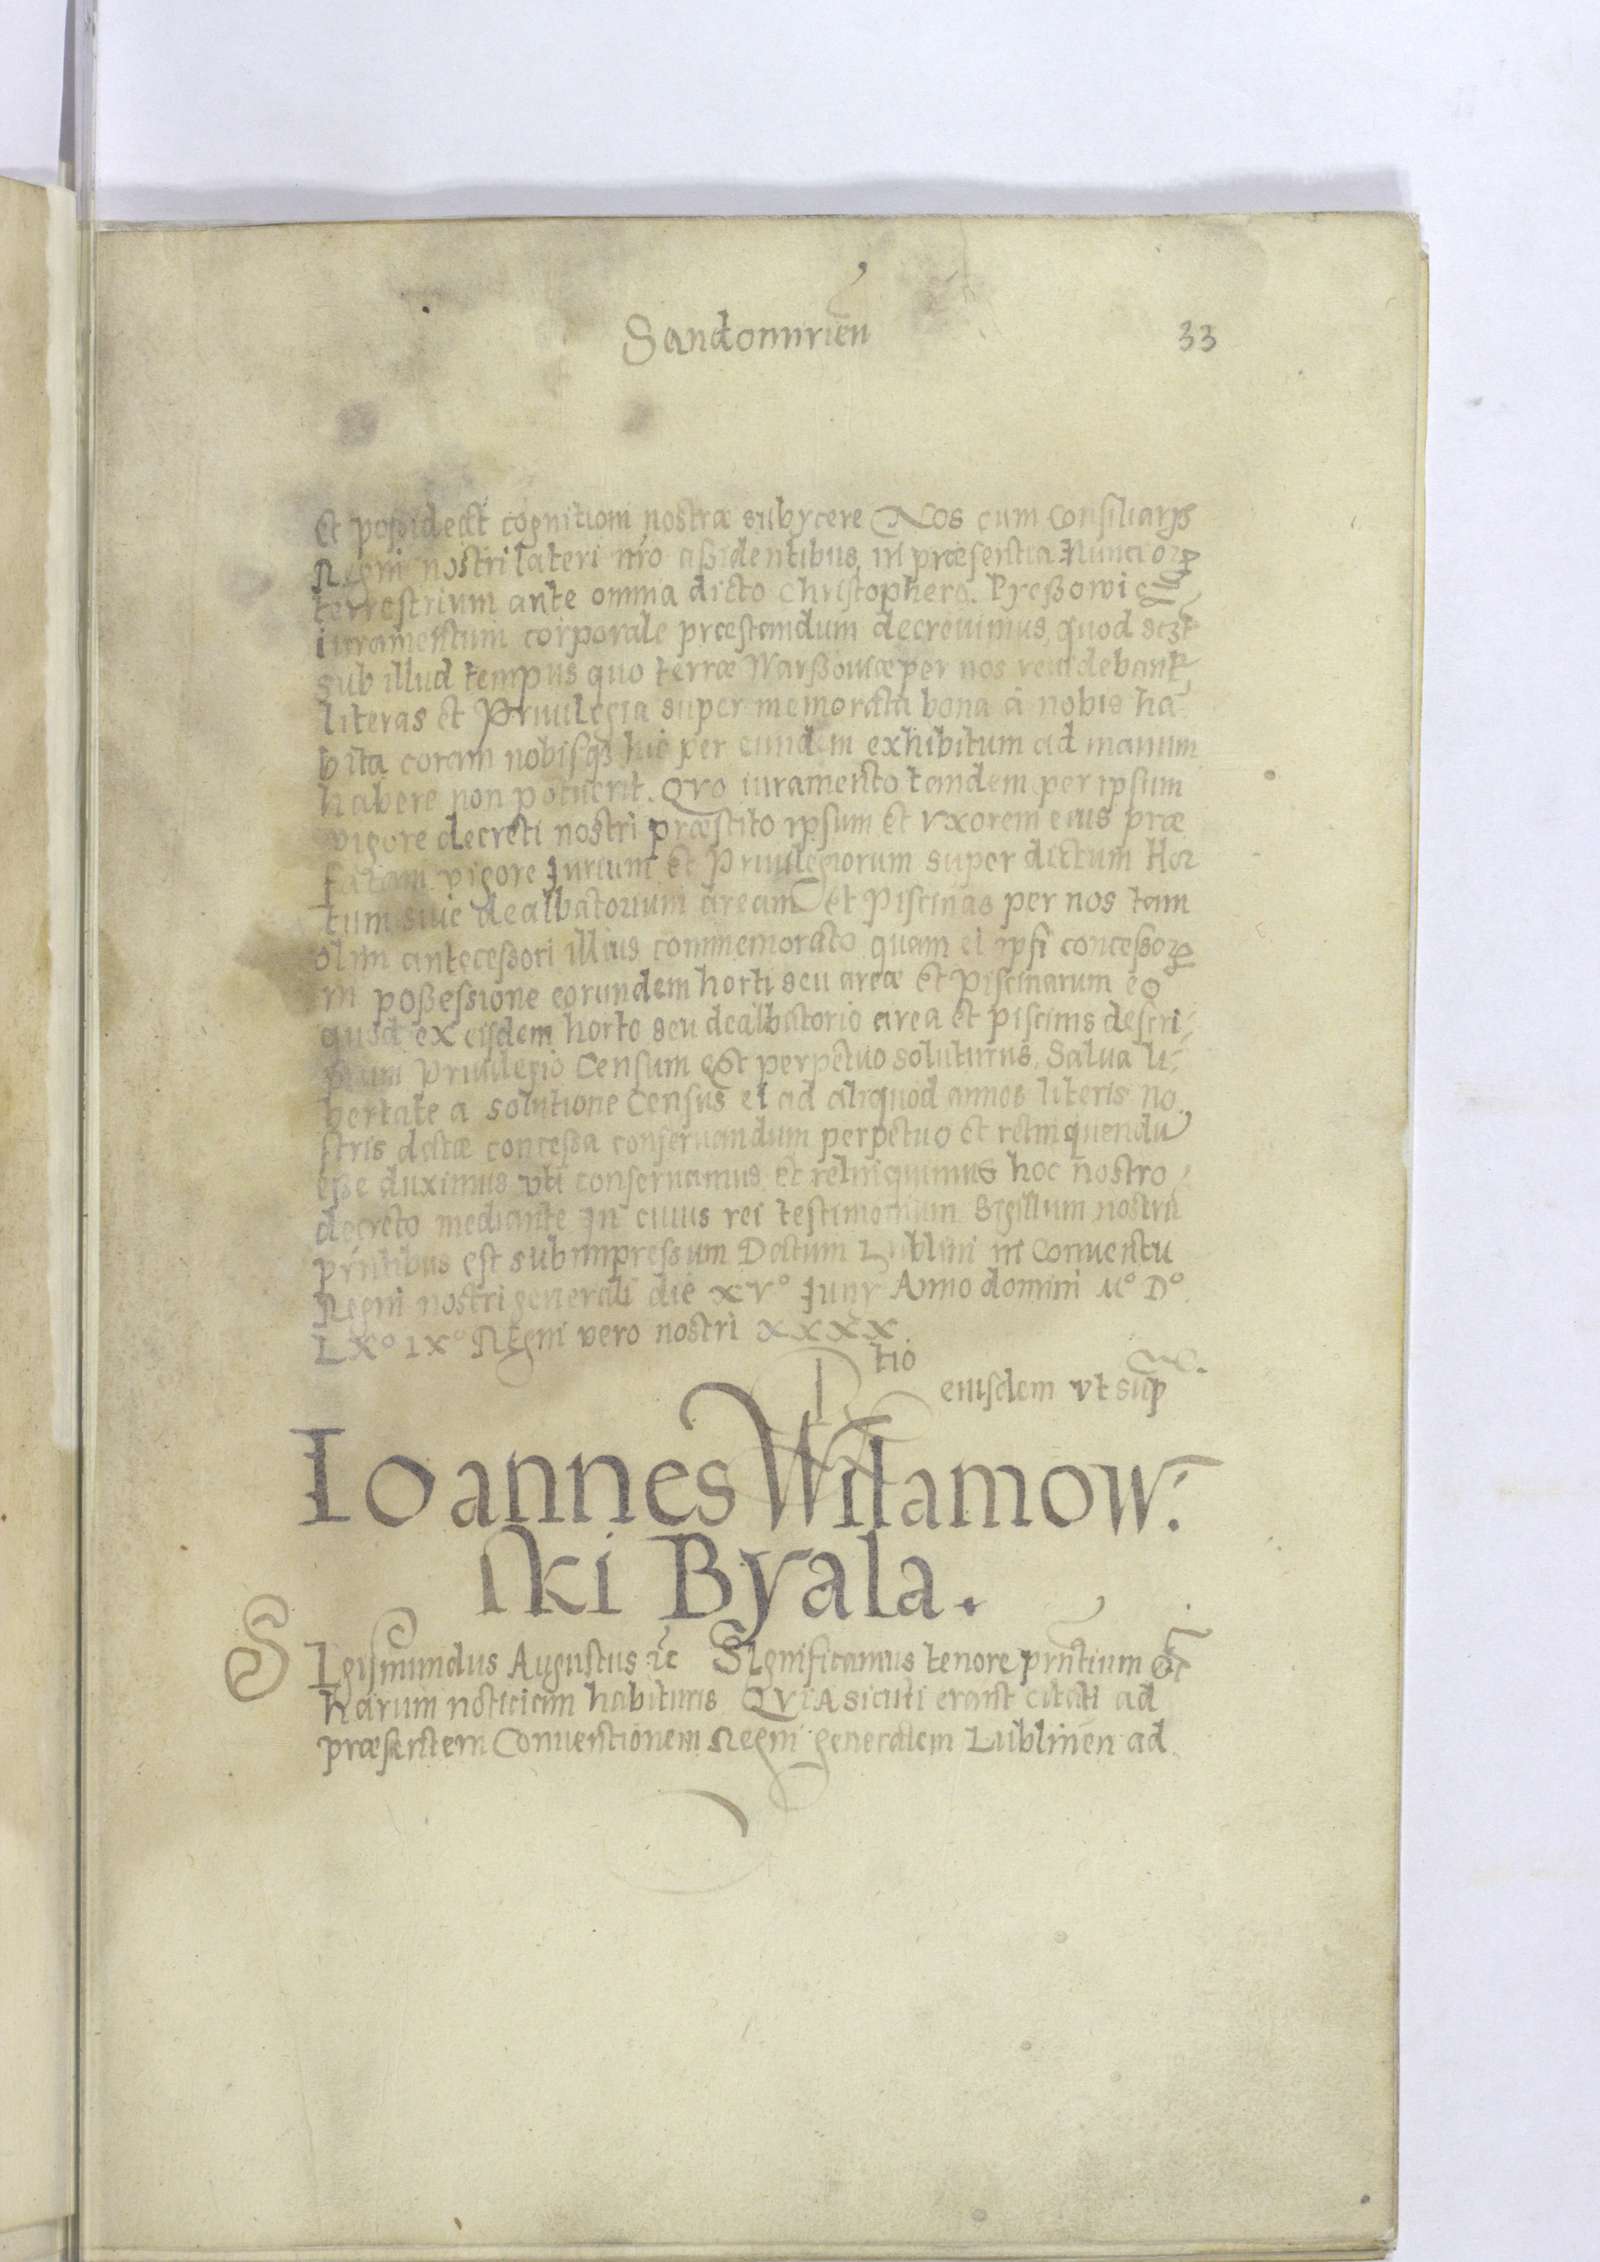 Sandomirien̄ 33
et poßideat cognitioni nostræ subycere Nos cum Consiliarys
Regni nostri lateri nr̄o aßidentibus, in præsentia Nuncior̄
terrestrium ante omnia dicto Christophero
iuramentum corporale præstandum decreuimus, quod
sub illud tempus quo terræ Warßouiæ per nos reuidebantr̄
literas et Priuilegia super memorata bona à nobis ha
bita coram nobisqȝ hic per eundem exhibitum ad manum
habere non potuerit. Qvo iuramento tandem per ipsum
vigore decreti nostri præstito ipsum et vxorem eius præ
fatam vigore Jurium et Priuilegiorum super dictum Hor
tum siue dealbatorium aream et Piscinas per nos tam
olim antecessori illius commemorato quam ei ipsi concessor̄
in poßessione eorundem horti seu areæ et Piscinarum eo
quod ex eisdem horto seu dealbatorio area et piscinis descri
ptum Priuilegio Censum est perpetuo soluturus, Salua li
bertate a solutione Census ei ad aliquod annos literis no
stris datæ concessa conseruandum perpetuo et relinquendū
eße duximus vti conseruamus et relinquimus hoc nostro
decreto mediante In cuius rei testimonium Sigillum nostrū
prn̄tibus est subimpressum Datum Lublini in Conuentu
Regni nostri generali die xvº Juny Anno domini Mº Dº
LXº IXº Regni vero nostri XXXX.
Rtio
eiusdem vt sup̄
Ioannes Wilamow
ski Byala.
SIgismundus Augustus ꝛc Significamus tenore prn̄tium
harum noticiam habituris QVIA sicuti erant citati ad
præsentem Conuentionem Regni generalem Lublinen̄ ad